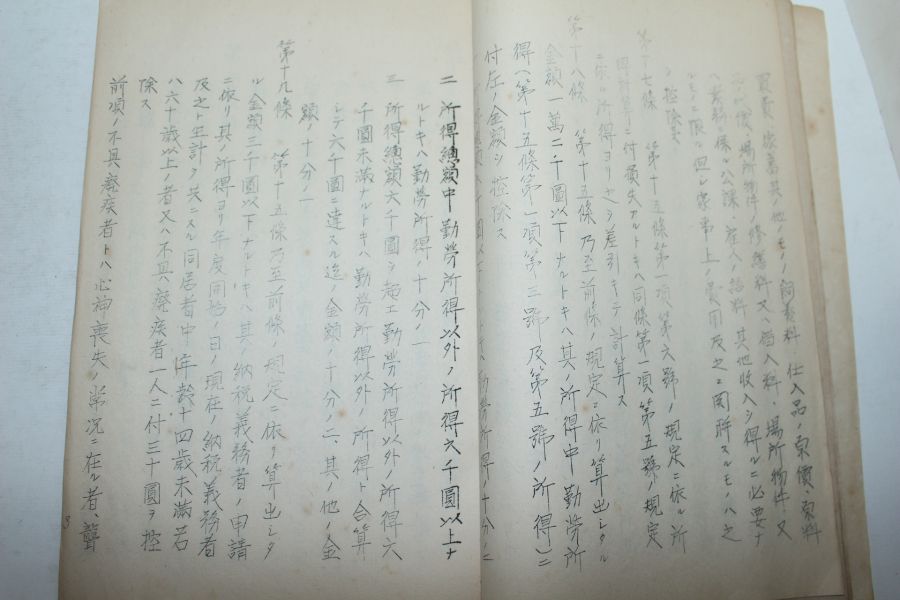 仕入品ノ原價、原料
家畜其ノ他ノモノノ飼養料
場所物件ノ修繕料又ハ借入料、場所物件又
ハ業務ニ係ル公課、雇人ノ給料其他收入ヲ得ルニ必要ナ
モノニ限ル但シ家事上ノ費用及之ニ関聯スルモノハ之
ヲ控除セス
第十七條 第十五條第一項第六號ノ規定ニ依ル所
得計算ニ付損失アルトキハ同條第一項第五號ノ規定
ニ依ル所得ヨリ之ヲ差引キテ計算ス
第十八條 第十五條乃至前條ノ規定ニ依リ算出シタル
金額一萬二千圓以下ナルトキハ其ノ所得中勤勞所
得(第十五條第一項第三號及第五號ノ所得)ニ
付左ノ金額ヲ控除ス
二 所得總額中勤勞所得以外ノ所得六千圓以上ナ
ルトキハ勤勞所得ノ十分ノ一
三 所得總額六千圓ヲ超エ勤勞所得以外ノ所得六
千圓未滿ナルトキハ勤勞所得以外ノ所得ト合算
シテ六千圓ニ達スル迄ノ金額ノ十分ノ二、其ノ他ノ金
額ノ十分ノ一
第十九條 第十五條乃至前條ノ規定ニ依リ算出シタ
ル金額三千圓以下ナルトキハ其ノ納税義務者ノ申請
ニ依リ其ノ所得ヨリ年度開始ノ日ノ現在ノ納税義務者
及之ト生計ヲ共ニスル同居者中年齢十四歳未滿若
ハ六十歳以上ノ者又ハ不具癈疾者一人ニ付三十圓ヲ控
除ス
前項ノ不具癈疾者トハ心神喪失ノ常况ニ在ル者、聾